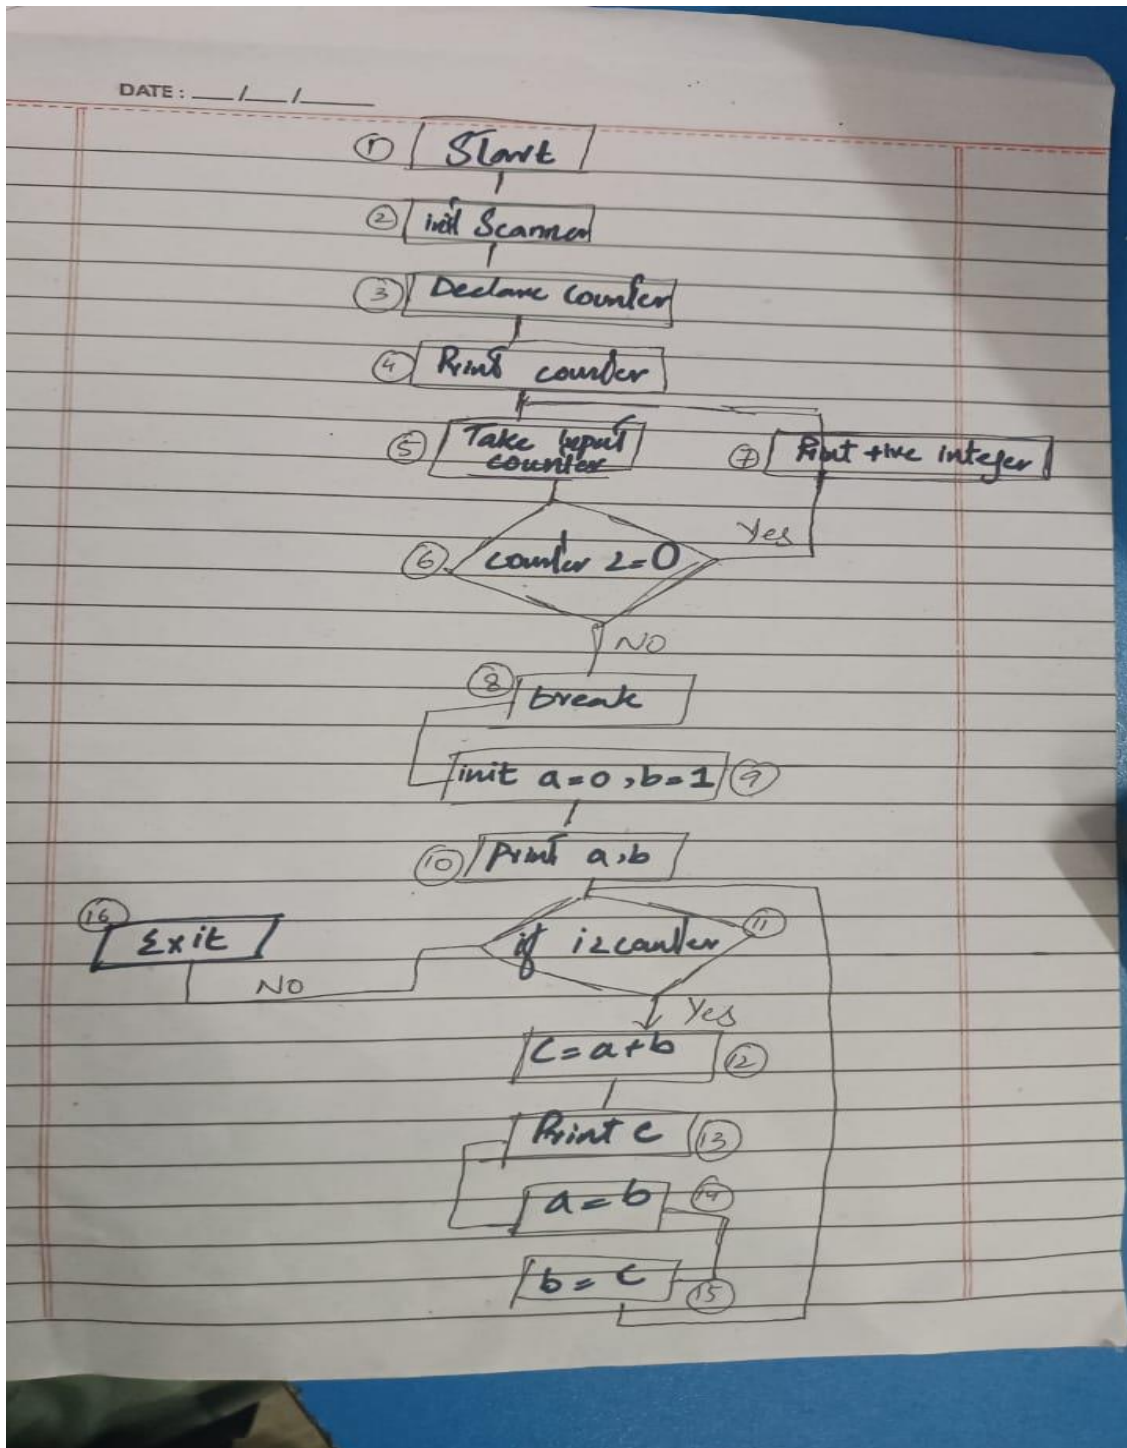 DATE : ___/___/_____
① Start
② init Scanner
③ Declare Counter
④ Print counter
⑤ Take Input
counter
⑦ Print +ive integer
Yes
⑥ counter <=0
NO
⑧ break
init a=0, b=1 ⑨
⑩ Print a,b
⑯ Exit
if i<counter ⑪
NO
Yes
C=a+b ⑫
Print c ⑬
a=b ⑭
b=c ⑮